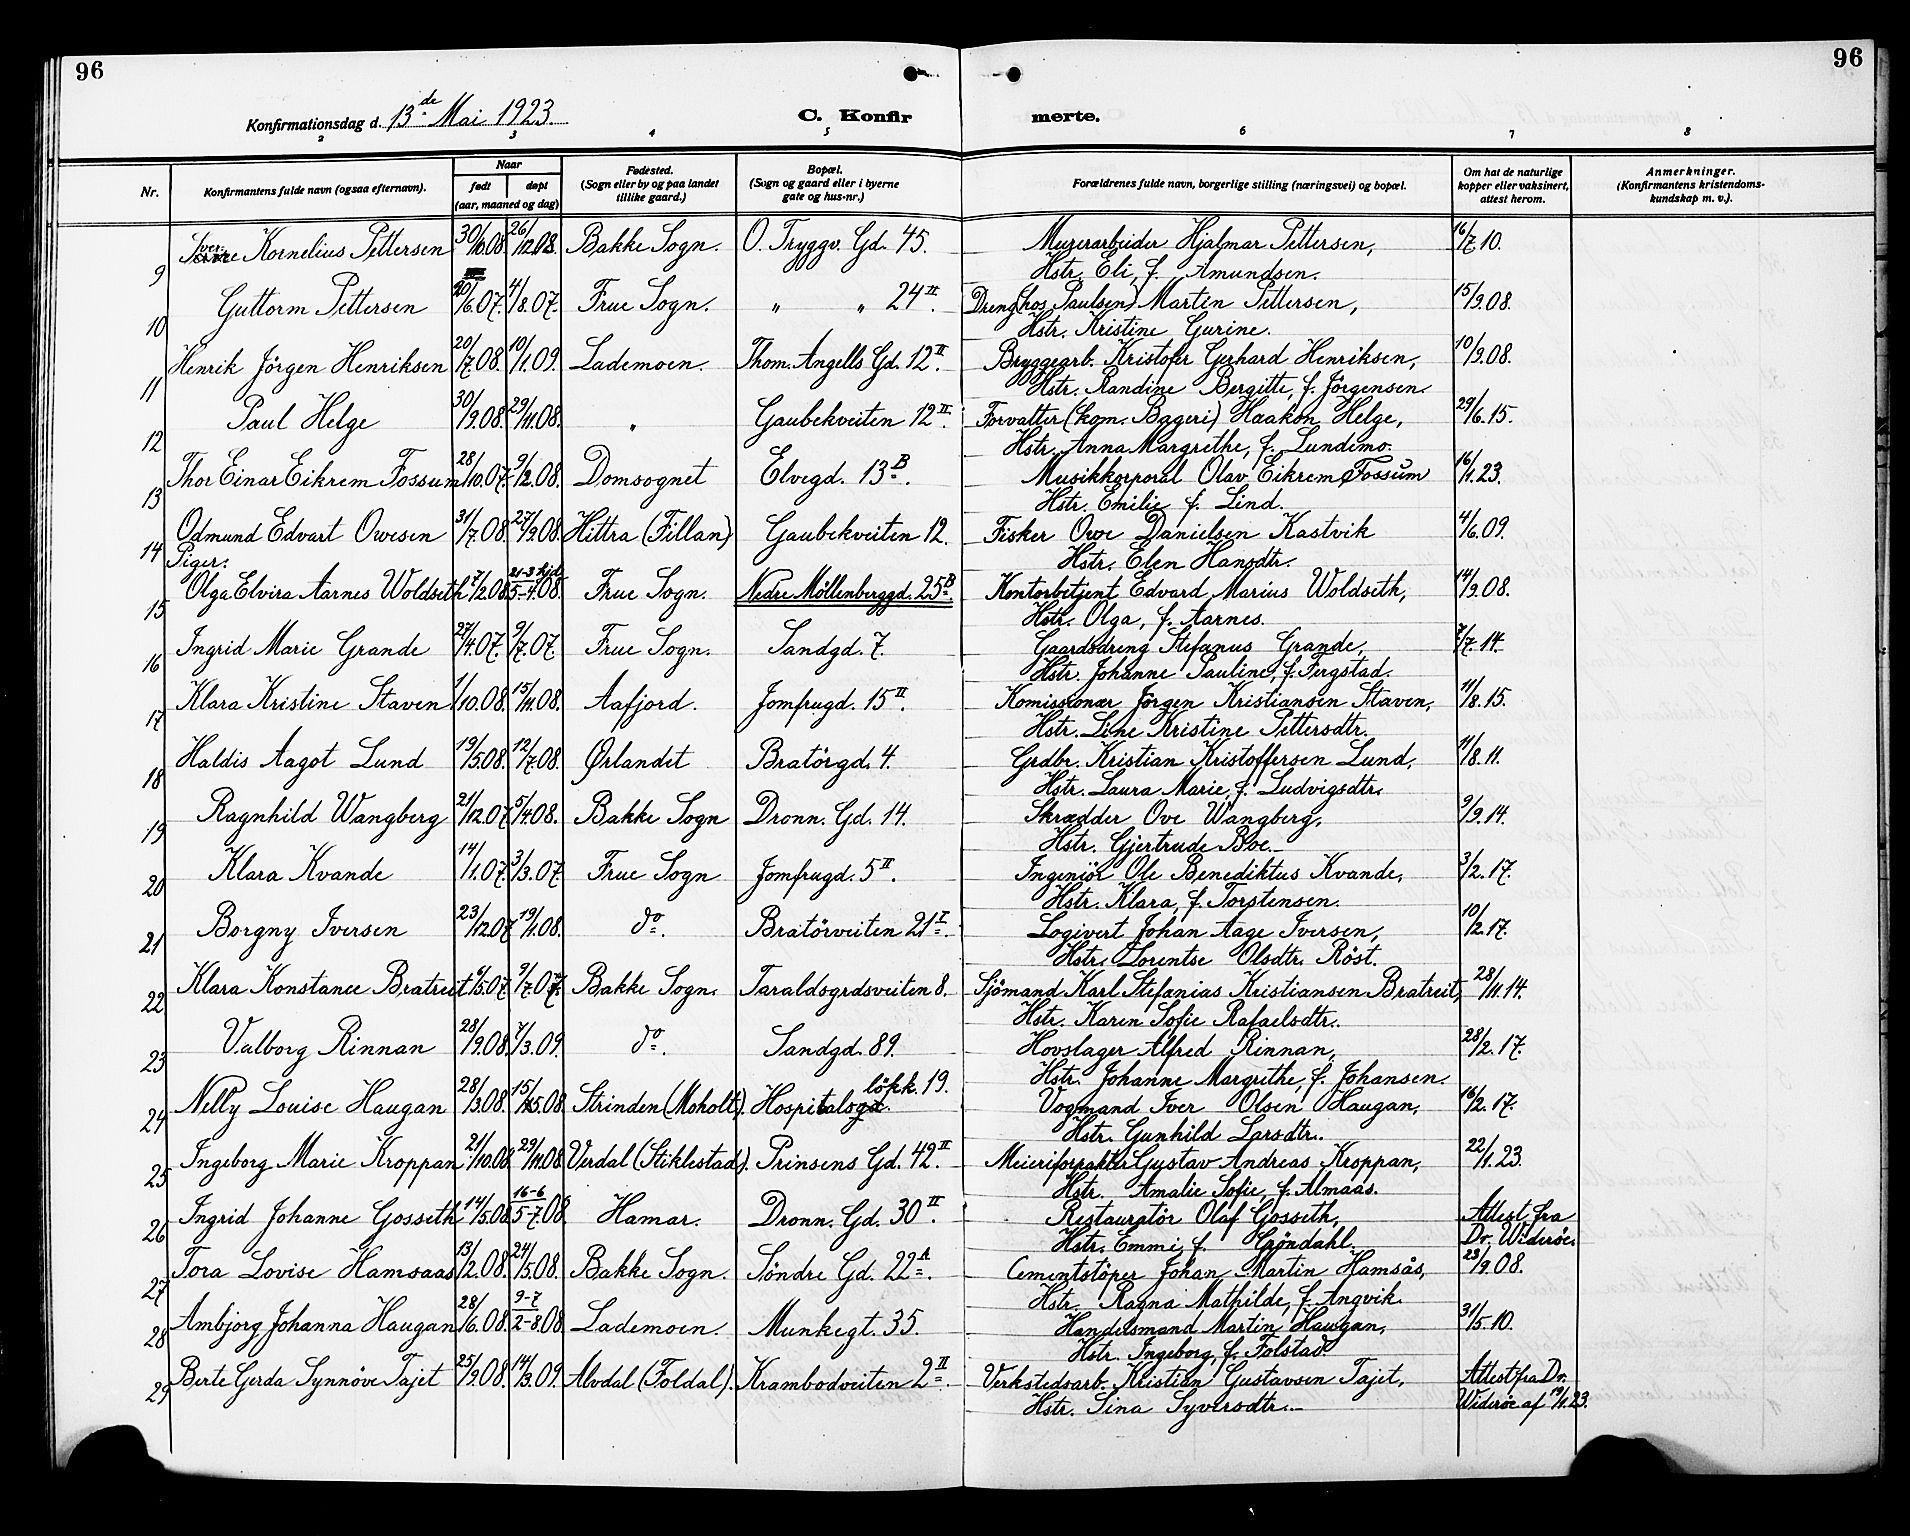 96
96
Konfirmationsdag d. 13de Mai 1923.
C. Konfirmerte.
2 3 4 5 6 7 8
Nr. Konfirmantens fulde navn (ogsaa efternavn). Naar født døpt (aar, maaned og dag) Fødested. (Sogn eller by og paa landet tillike gaard.) Bopæl. (Sogn og gaard eller i byerne gate og hus-nr.) Forældrenes fulde navn, borgerlige stilling (næringsvei) og bopæl. Om hat de naturlige kopper eller vaksinert, attest herom. Anmerkninger. (Konfirmantens kristendomskundskap m. v.).
9 Sverre Kornelius Pettersen 30/10.08. 26/12.08. Bakke Sogn. O. Tryggv. Gd. 45. Murerarbeider Hjalmar Pettersen, 16/7.10.
Hstr. Eli, f. Amundsen.
10 Guttorm Pettersen 20/6.07. 4/8.07. Frue Sogn. " " 24 II. Dreng (hos Paulsen) Martin Pettersen, 15/9.08.
Hstr. Kristine Gurine.
11 Henrik Jörgen Henriksen 20/7.08. 10/1.09. Lademoen. Thom. Angells Gd. 12 II. Bryggearb. Kristofer Gerhard Henriksen, 10/9.08.
Hstr. Randine Bergitte, f. Jörgensen.
12 Paul Helge 30/9.08. 29/11.08. " Gaubekveiten 12 II. Forvalter (kom. Bageri) Haakon Helge, 29/6.15.
Hstr. Anna Margrethe, f. Lundemo.
13 Thor Einar Eikrem Fossum 28/10.07. 9/2.08. Domsognet Elvegd. 13 B. Musikkorporal Olav Eikrem Fossum 16/1.23.
Hstr. Emilie f. Lind.
14 Odmund Edvart Owesen 31/7.08. 27/9.08. Hittra (Fillan) Gaubekveiten 12. Fisker Owe Danielsen Kastvik 4/6.09.
Hstr. Elen Hansdtr.
Piger.
15 Olga Elvira Aarnes Woldseth 7/2.08. 21-3 hjd. 5-4.08. Frue Sogn. Nedre Möllenberggd. 25 B. Kontorbetjent Edvard Marius Woldseth, 14/9.08.
Hstr. Olga, f. Aarnes.
16 Ingrid Marie Grande 27/4.07. 9/7.07. Frue Sogn. Sandgd. 7. Gaardsdreng Stefanus Grande, 7/7.14.
Hstr. Johanne Pauline, f. Fergstad.
17 Klara Kristine Staven 1/10.08. 15/11.08. Aafjord. Jomfrugd. 15 II. Komissionær Jörgen Kristiansen Staven, 11/8.15.
Hstr. Line Kristine Pettersdtr.
18 Haldis Aagot Lund 19/5.08. 12/7.08. Ørlandet Bratörgd. 4. Grdbr. Kristian Kristoffersen Lund, 11/8.11.
Hstr. Laura Marie, f. Ludvigsdtr.
19 Ragnhild Wangberg 21/12.07. 5/4.08. Bakke Sogn Dronn. Gd. 14. Skrædder Ove Wangberg, 9/9.14.
Hstr. Gjertrude Boe.
20 Klara Kvande 14/1.07. 3/3.07. Frue Sogn Jomfrugd. 5 II. Ingeniör Ole Benediktus Kvande, 3/2.17.
Hstr. Klara, f. Torstensen.
21 Borgny Iversen 23/12.07. 19/1.08. do. Bratörveiten 21 I. Logivert Johan Aage Iversen, 10/2.17.
Hstr. Lorentse Olsdtr. Röst.
22 Klara Konstance Bratreit /5.07. 9/7.07. Bakke Sogn. Taraldsgrdsveiten 8. Sjömand Karl Stefanias Kristiansen Bratreit, 28/11.14.
Hstr. Karen Sofie Rafaelsdtr.
23 Valborg Rinnan 28/9.08. 7/3.09. do. Sandgd. 89. Hovslager Alfred Rinnan, 28/2.17.
Hstr. Johanne Margrethe, f. Johansen.
24 Nelly Louise Haugan 28/3.08. 15/5.08. Strinden (Moholt). Hospitalslökk. 19. Vogmand Iver Olsen Haugan, 16/2.17.
Hstr. Gunhild Larsdtr.
25 Ingeborg Marie Kroppan 21/10.08. 29/11.08. Verdal (Stiklestad). Prinsens Gd. 42 II. Meieriforpakter Gustav Andreas Kroppan, 22/1.23.
Hstr. Amalie Sofie, f. Almaas.
26 Ingrid Johanne Gosseth 14/5.08. 16-6 5-7.08. Hamar. Dronn. Gd. 30 II. Restauratör Olaf Gosseth, Attest fra
Hstr. Emmi, f. Gröndahl. Dr. Wideröe.
27 Tora Lovise Hamsaas 13/2.08. 24/5.08. Bakke Sogn. Söndre Gd. 22 A. Cementstöper Johan Martin Hamsås, 23/9.08.
Hstr. Ragna Mathilde, f. Angvik.
28 Ambjorg Johanna Haugan 28/6.08. 9-7 2-8.08. Lademoen. Munkegt. 35. Handelsmand Martin Haugan, 31/5.10.
Hstr. Ingeborg, f. Folstad.
29 Berte Gerda Synnöve Tajet 25/9.08. 14/3.09. Alvdal (Foldal). Krambodveiten 2 II. Verkstedsarb. Kristian Gustavsen Tajet, Attest fra Dr.
Hstr. Sina Syversdtr. Wideröe af 19/1.23.